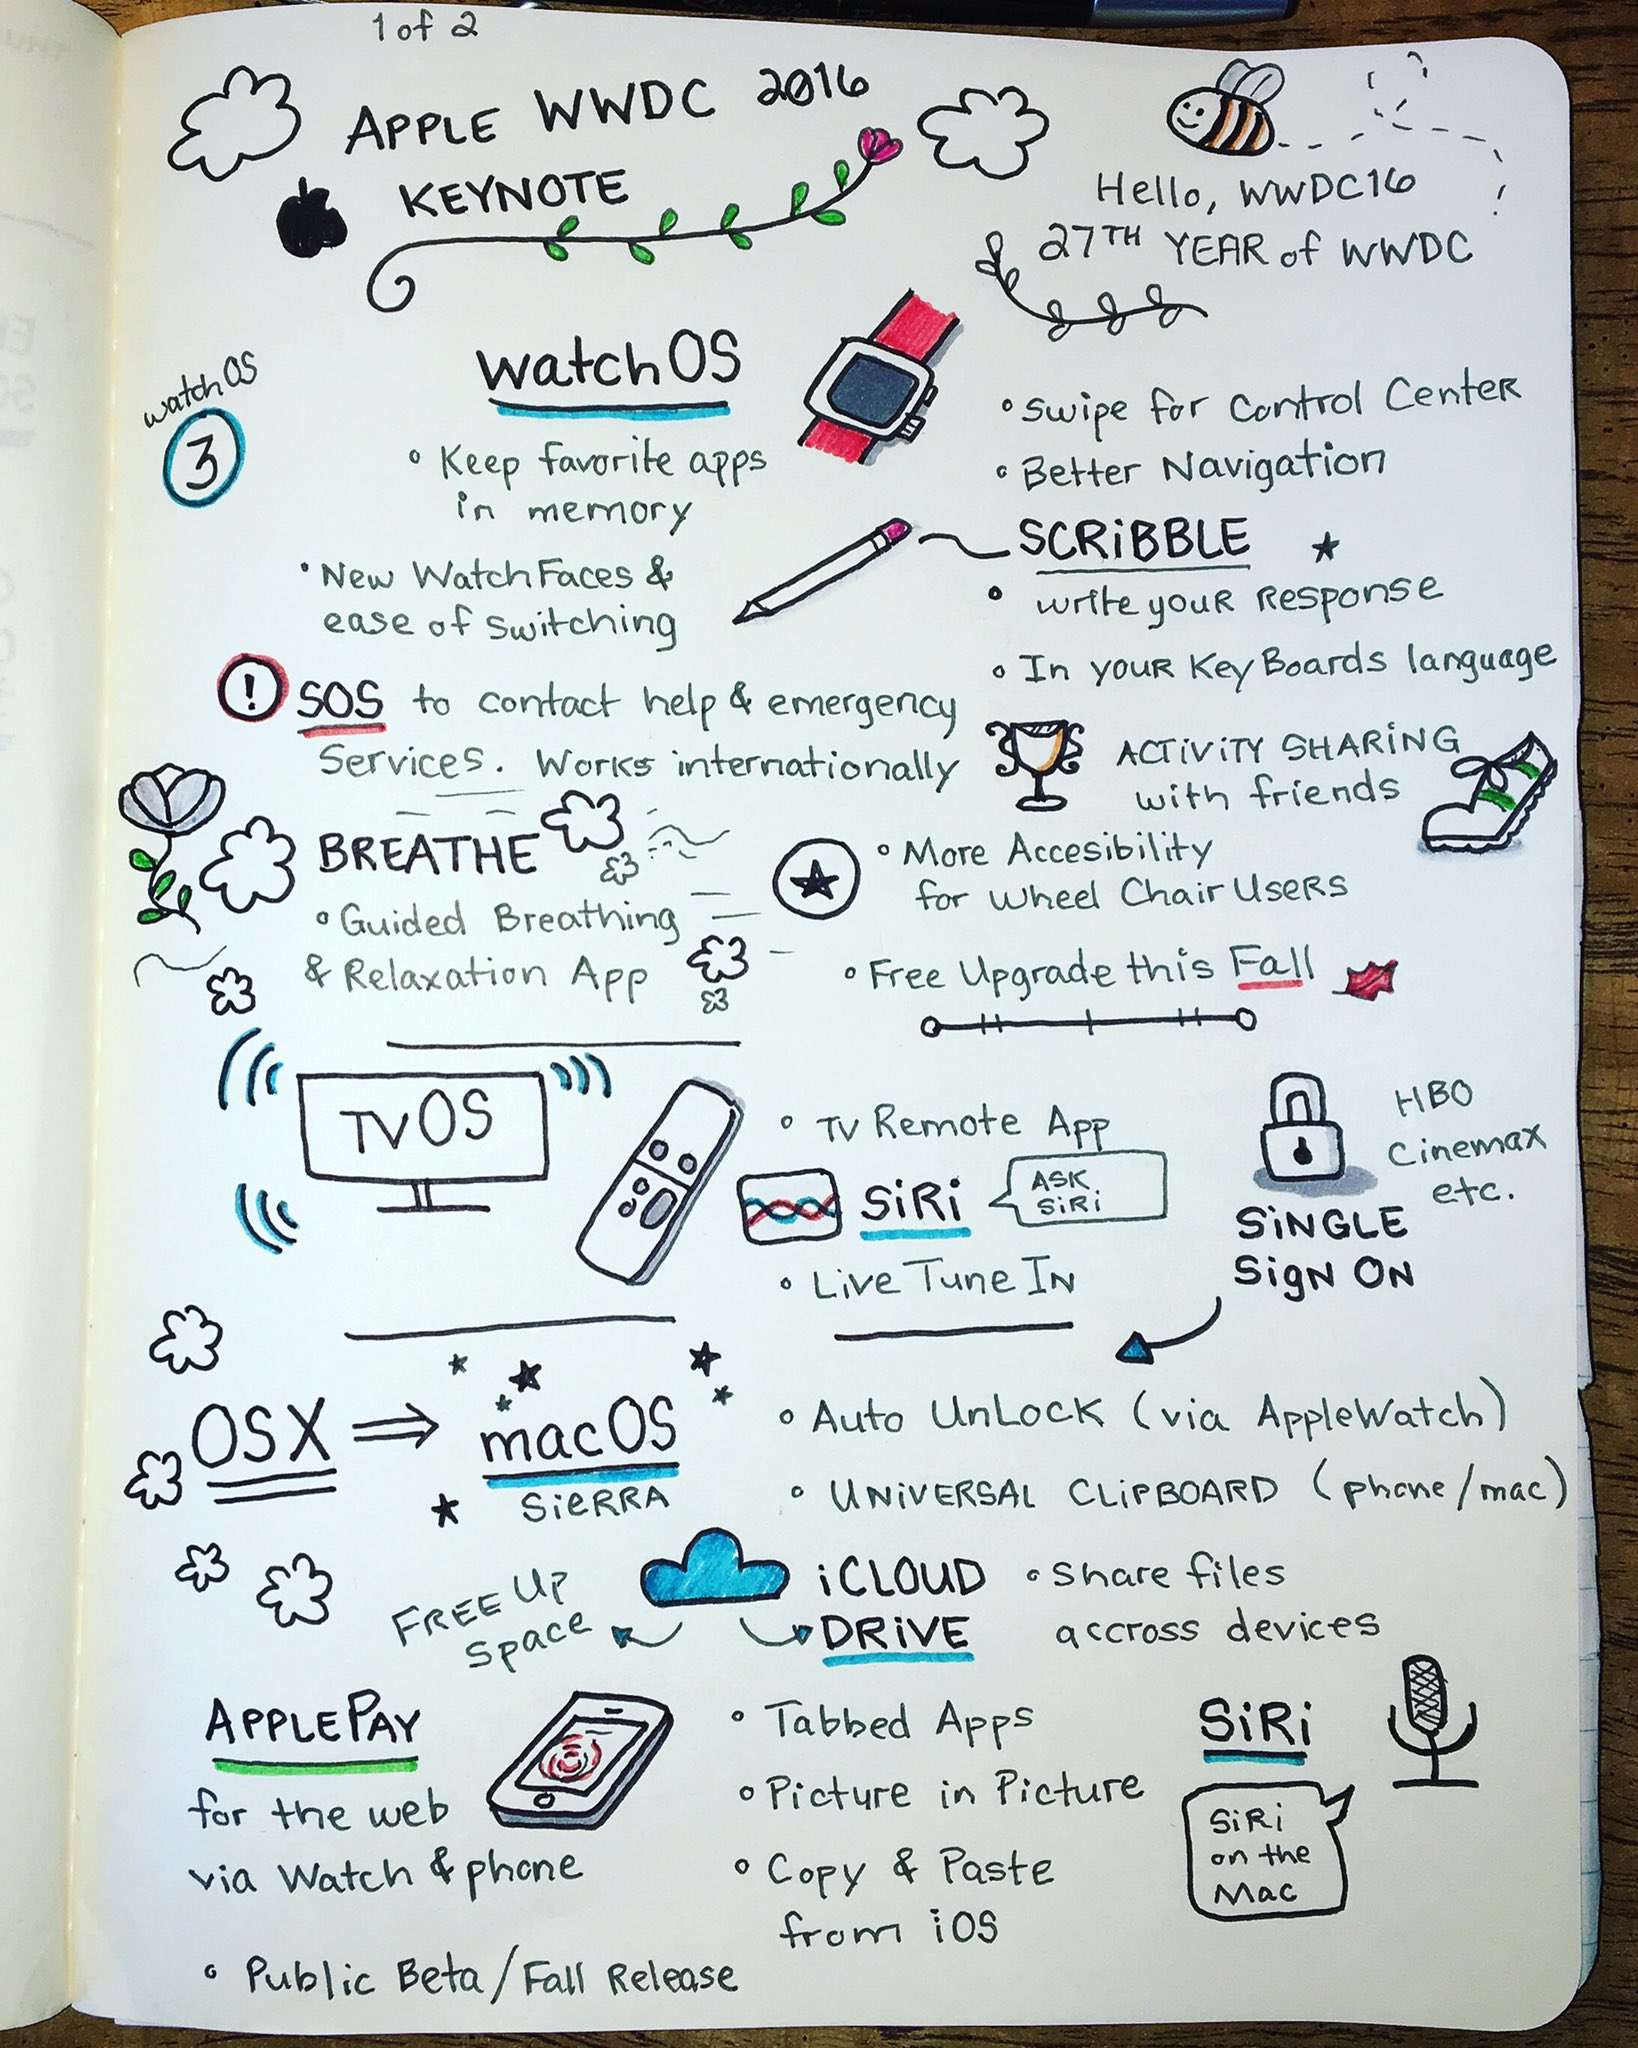 1 of 2
APPLE WWDC 2016
KEYNOTE
Hello, WWDC16
27TH YEAR of WWDC
watchOS
3
watchOS
• Keep favorite apps
in memory
• New Watch Faces &
ease of switching
• Swipe for Control Center
• Better Navigation
SCRiBBLE
• write your Response
• In your KeyBoards language
! SOS to contact help & emergency
Services. Works internationally
ACTiViTY SHARING
with friends
BREATHE
• Guided Breathing
& Relaxation App
• More Accesibility
for Wheel Chair Users
• Free Upgrade this Fall
TVOS
• TV Remote App
SiRi
ASK
SiRi
• Live Tune In
HBO
Cinemax
etc.
SiNGLE
SigN ON
OSX ⇒ macOS
SiERRA
• Auto UnLock (via AppleWatch)
• UNiVERSAL CLiPBOARD (phone/mac)
FREE UP
Space
iCLOUD
DRiVE
• Share files
accross devices
APPLE PAY
for the web
via Watch & phone
• Tabbed Apps
• Picture in Picture
• Copy & Paste
from iOS
SiRi
SiRi
on the
Mac
• Public Beta/Fall Release